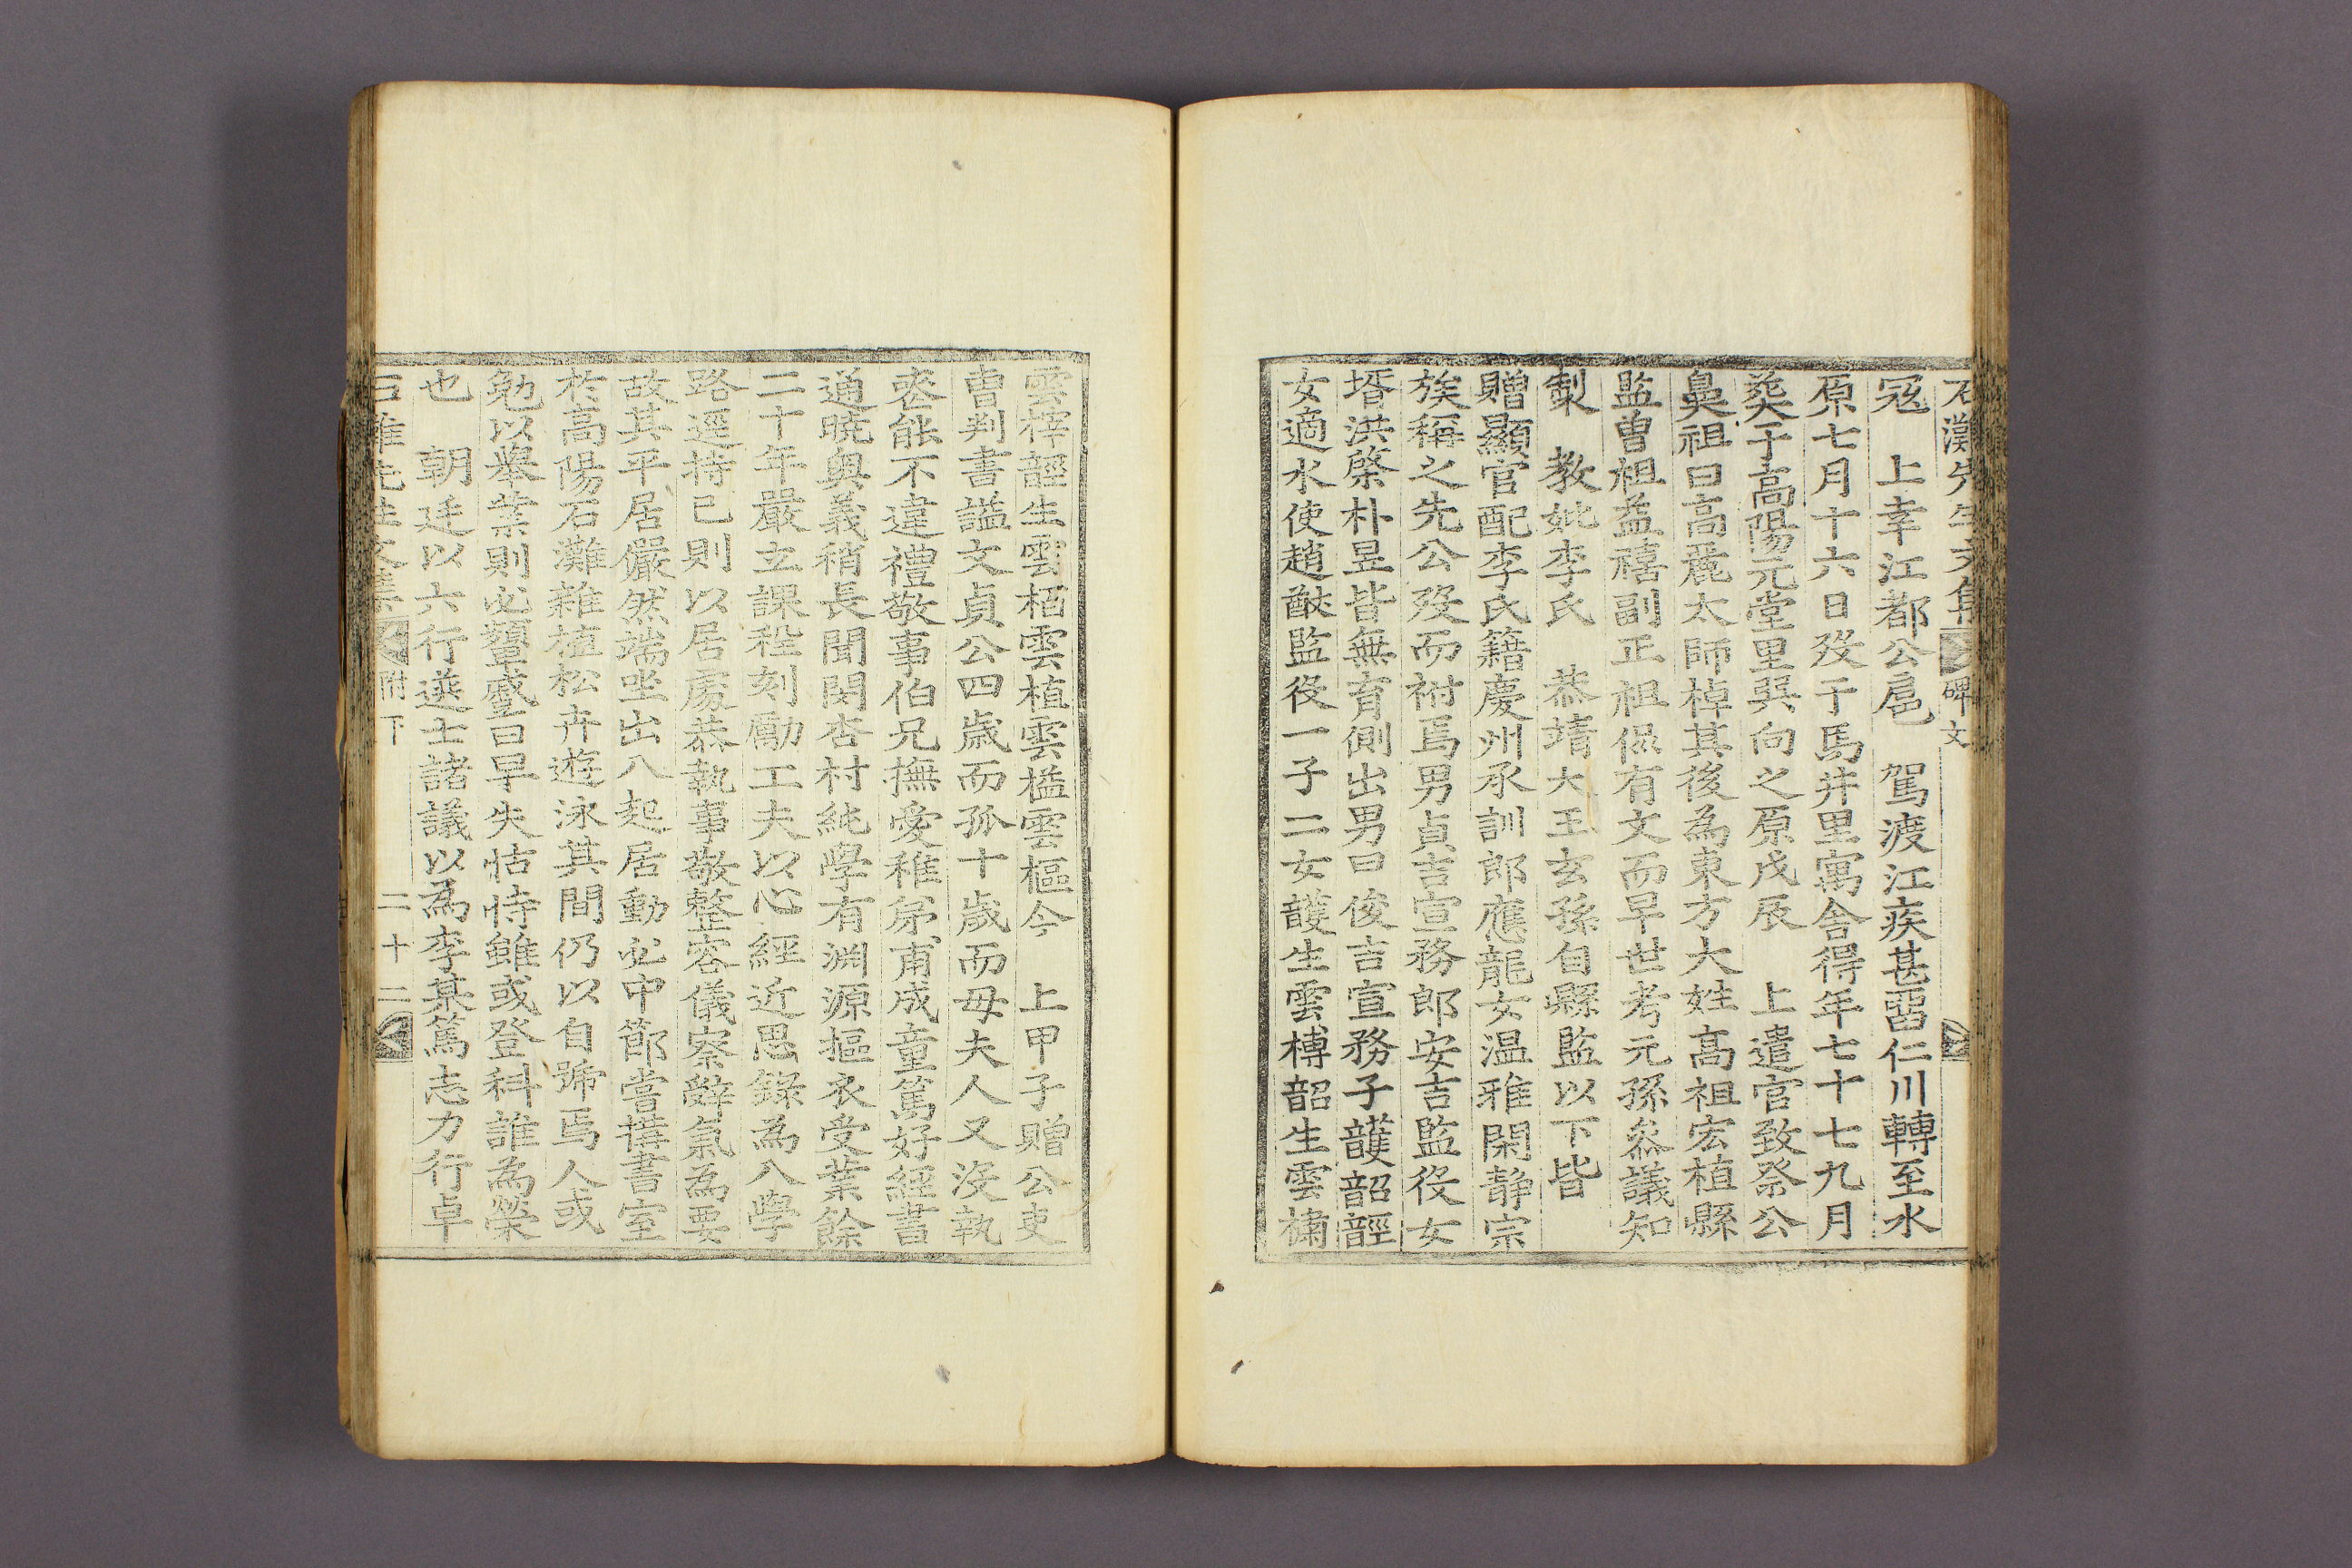 石灘先生文集 碑文
寇 上幸江都公扈 駕渡江疾甚留仁川轉至水
原七月十六日歿于馬井里寓舍得年七十七九月
葬于高陽元堂里巽向之原戊辰 上遣官致祭公
鼻祖曰高麗太師棹其後為東方大姓高祖宏植縣
監曾祖益禧副正祖偘有文而早世考元孫叅議知
製 教妣李氏 恭靖大王玄孫自縣監以下皆
贈顯官配李氏籍慶州承訓郎應龍女温雅閑静宗
族稱之先公歿而祔焉男貞吉宣務郎安吉監役女
壻洪棨朴昱皆無育側出男曰俊吉宣務子頀韶䪫
女適水使趙猷監役一子二女頀生雲榑韶生雲𣚊
雲檡䪫生雲栢雲植雲楹雲樞今 上甲子贈公吏
曹判書謚文貞公四歲而孤十歲而母夫人又沒執
喪能不違禮敬事伯兄撫愛稚弟甫成童篤好經書
通曉奧義稍長聞閔杏村純學有淵源摳衣受業餘
二十年嚴立課程刻勵工夫以心經近思錄為入學
路逕持已則以居處恭執事敬整容儀察辭氣為要
故其平居儼然端坐出入起居動必中節嘗構書室
於高陽石灘雜植松卉遊泳其間仍以自號焉人或
勉以擧業則必顰蹙曰早失怙恃雖或登科誰為榮
也 朝廷以六行選士諸議以為李某篤志力行卓
石灘先生文集 附下 二十二